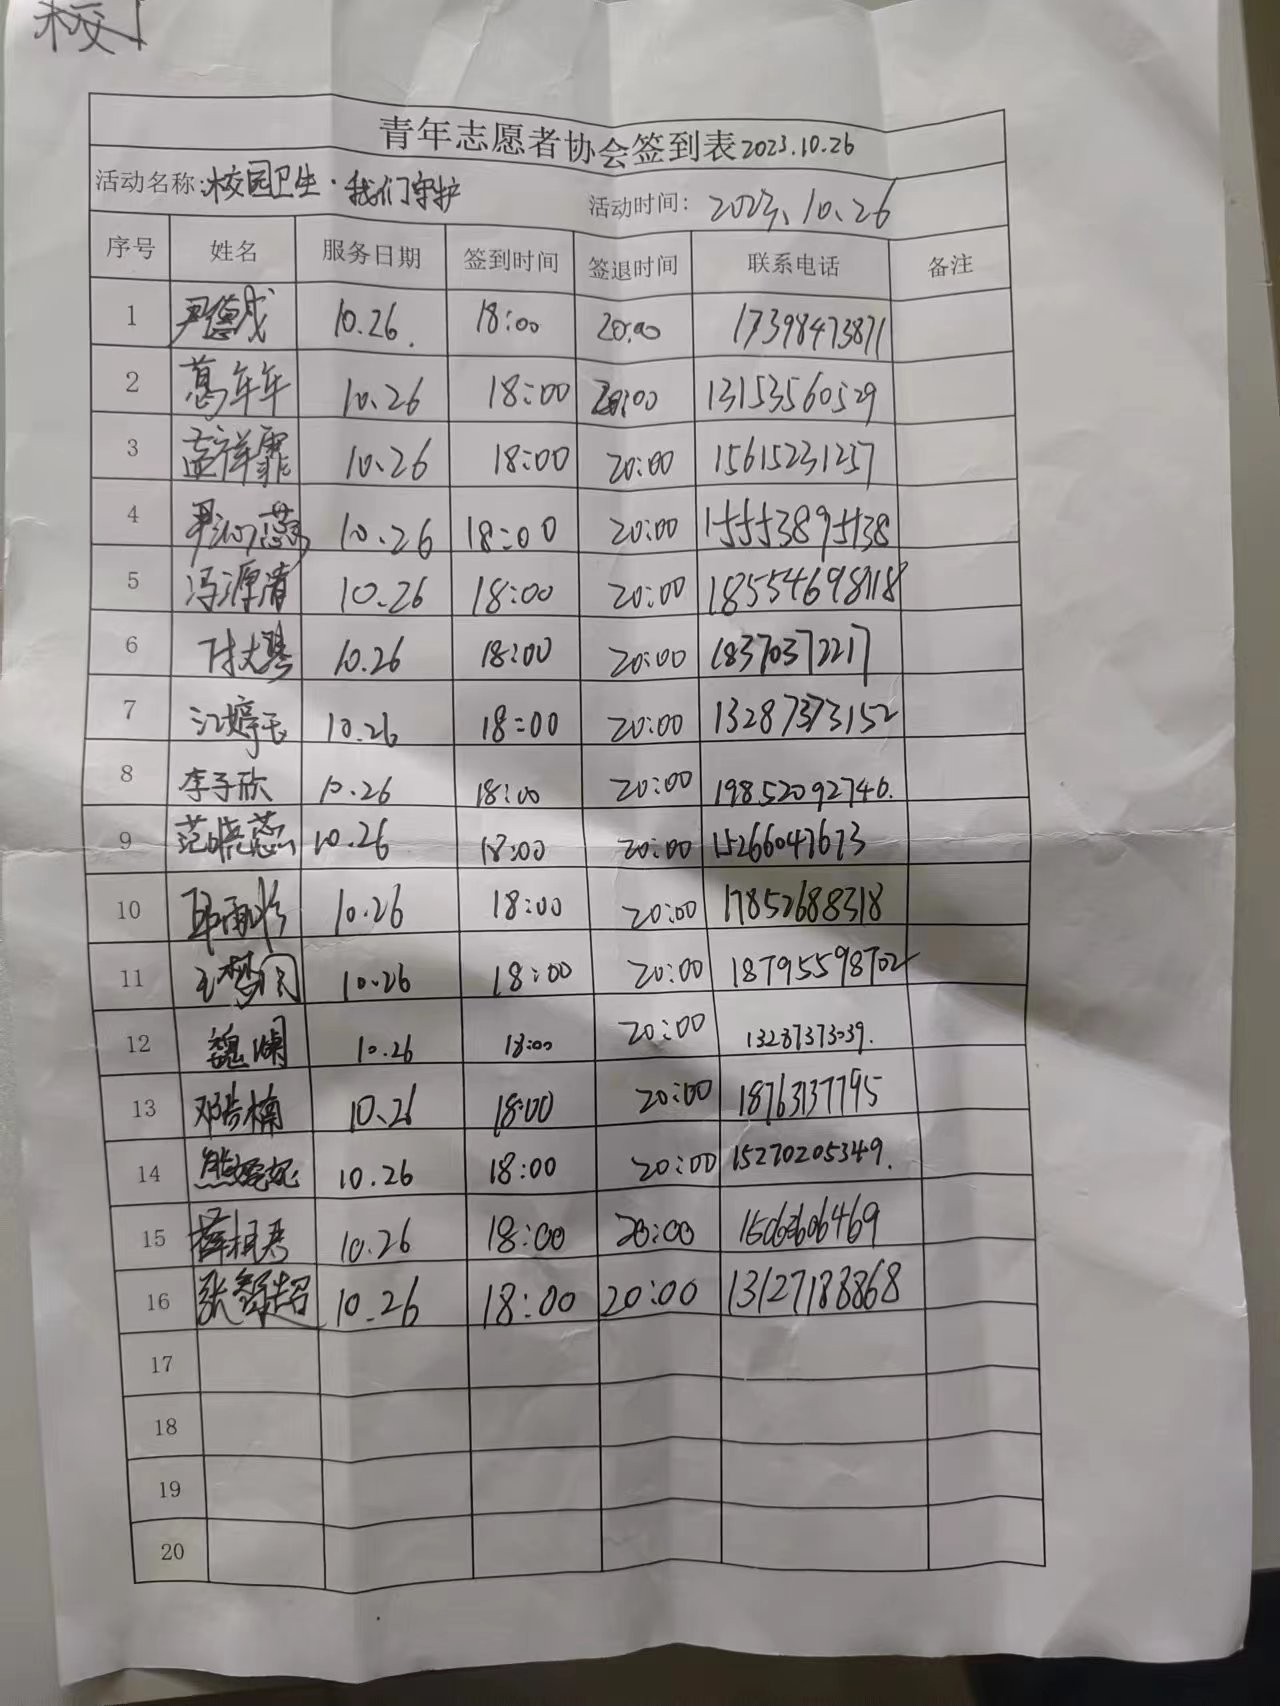 校
青年志愿者协会签到表2023.10.26
活动名称:校园卫生·我们守护 活动时间: 2023.10.26
序号 姓名 服务日期 签到时间 签退时间 联系电话 备注
1 尹德成 10.26. 18:00 20:00 17398473871
2 葛年年 10.26 18:00 20:00 13153560529
3 孟祥霏 10.26 18:00 20:00 15615231257
4 尹 蕊 10.26 18:00 20:00 15553895538
5 冯源清 10.26 18:00 20:00 18554698718
6 10.26 18:00 20:00 18370372217
7 江婷玉 10.26 18:00 20:00 13287373152
8 李子欣 10.26 18:00 20:00 19852092746.
9 范晓蕊 10.26 18:00 20:00 15266047673
10 邱雨 10.26 18:00 20:00 17852688318
11 王梦 10.26 18:00 20:00 18795598702
12 魏澜 10.26 18:00 20:00 13287373039.
13 邓浩楠 10.26 18:00 20:00 18763137795
14 熊婉妮 10.26 18:00 20:00 15270205349.
15 薛相君 10.26 18:00 20:00
16 张智超 10.26 18:00 20:00 13127188868
17
18
19
20